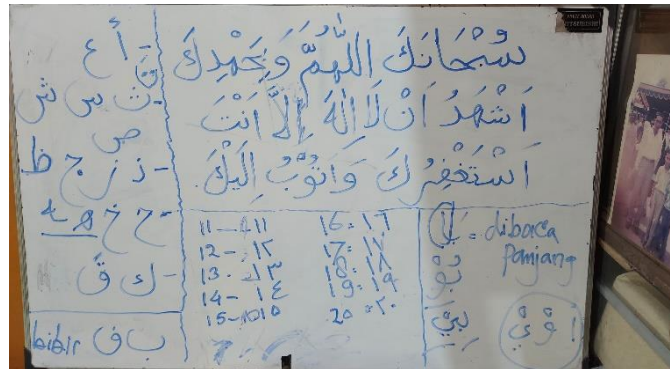 سُبْحَانَكَ اللّٰهُمَّ وَبِحَمْدِكَ
اَشْهَدُ اَنْ لَا اِلٰهَ اِلَّا اَنْتَ
اَسْتَغْفِرُكَ وَاَتُوْبُ اِلَيْكَ
- أ ع
- ث س ش
ص
- ذ ز ج ظ
- ح خ ه
- ك ق
ب ف bibir
11 - ١١
12 - ١٢
13 - ١٣
14 - ١٤
15 - ١٥
16 = ١٦
17 = ١٧
18 = ١٨
19 = ١٩
20 = ٢٠
بَا = dibaca
panjang
بُوْ
بِيْ
ا وْ يْ